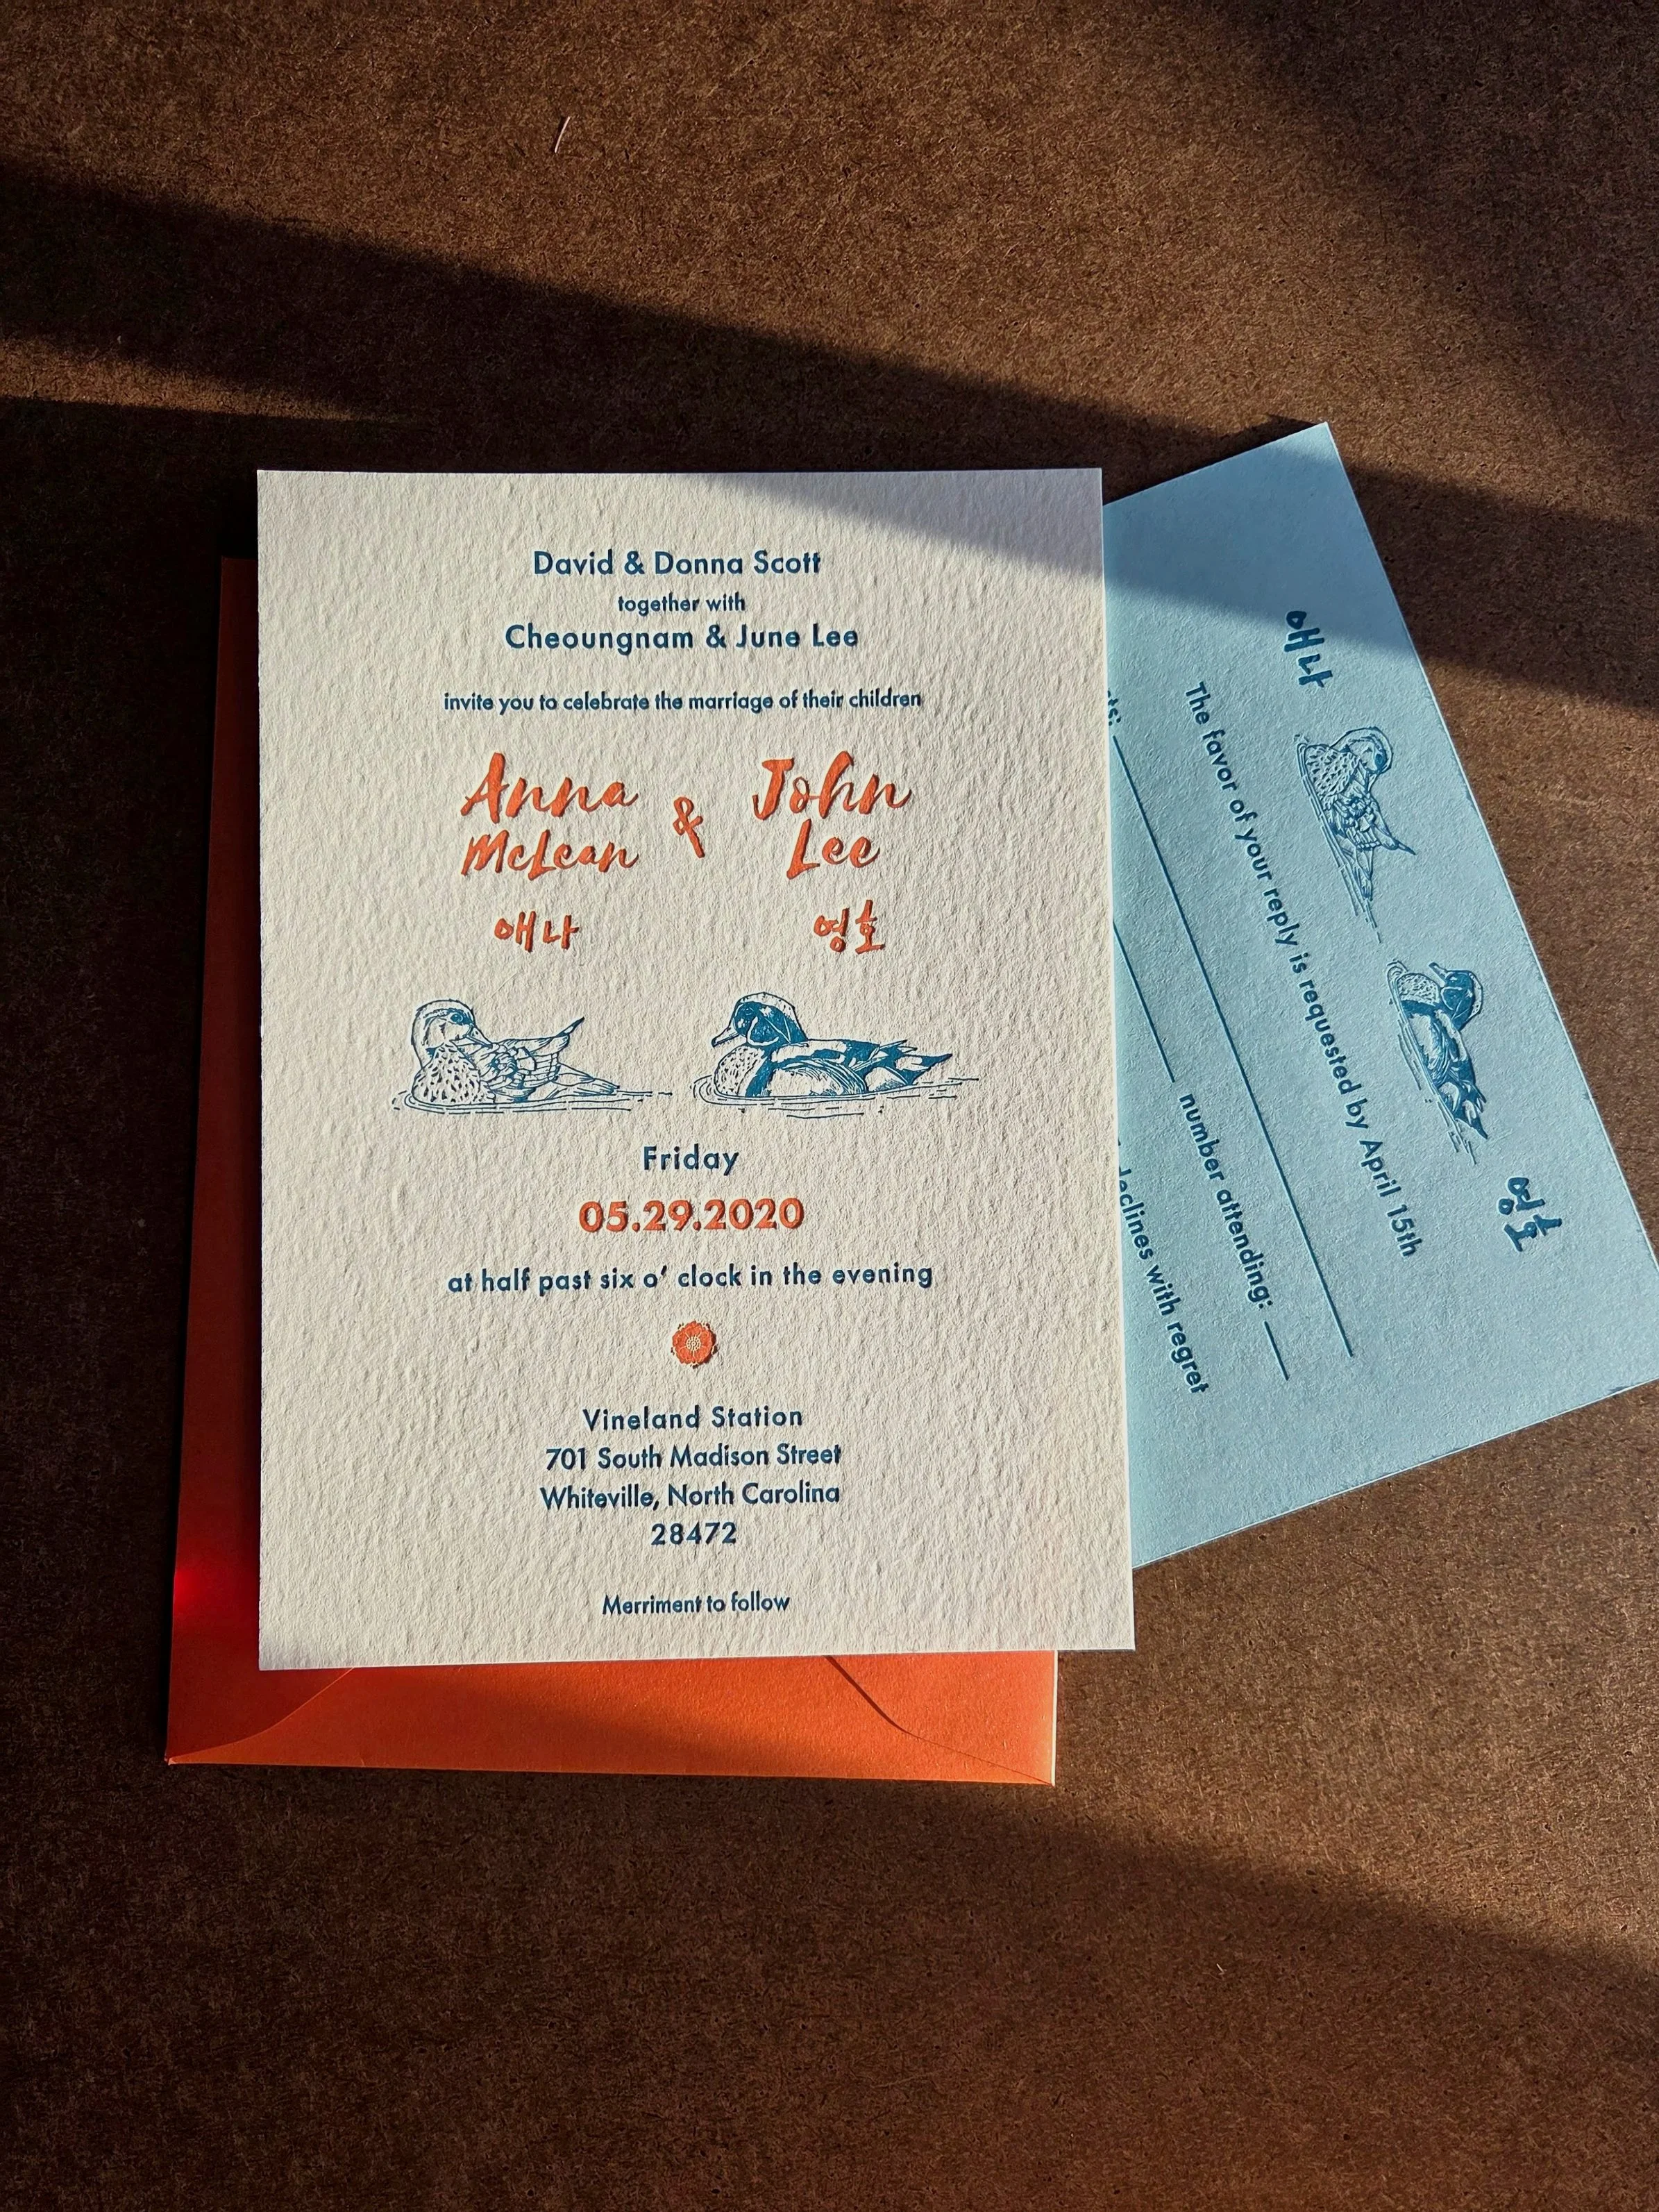 David & Donna Scott
together with
Cheoungnam & June Lee
invite you to celebrate the marriage of their children
Anna
McLean
&
John
Lee
애나
영호
Friday
05.29.2020
at half past six o' clock in the evening
Vineland Station
701 South Madison Street
Whiteville, North Carolina
28472
Merriment to follow
애나
영호
The favor of your reply is requested by April 15th
number attending:
declines with regret